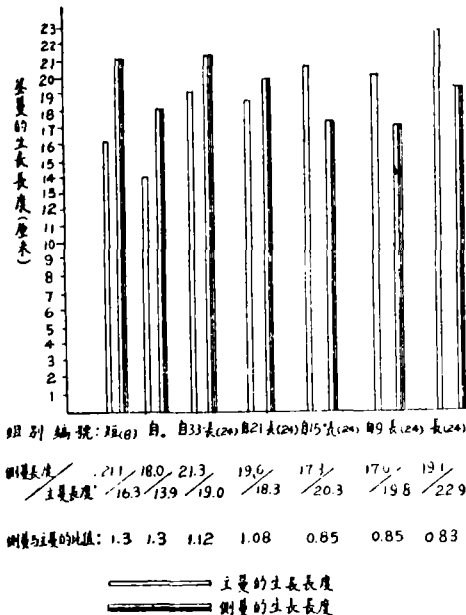 茎蔓的生長長度(厘米)
23
22
21
20
19
18
17
16
15
14
13
12
11
10
9
8
7
6
5
4
3
2
1
組別編號: 短(8) 自。 自33長(24) 自21長(24) 自15長(24) 自9長(24) 長(24)
側蔓長度/主蔓長度: 21.1/16.3 18.0/13.9 21.3/19.0 /18.3 /20.3 /19.8 /22.9
側蔓与主蔓的比值: 1.3 1.3 1.12 1.08 0.85 0.85 0.83
主蔓的生長長度
側蔓的生長長度